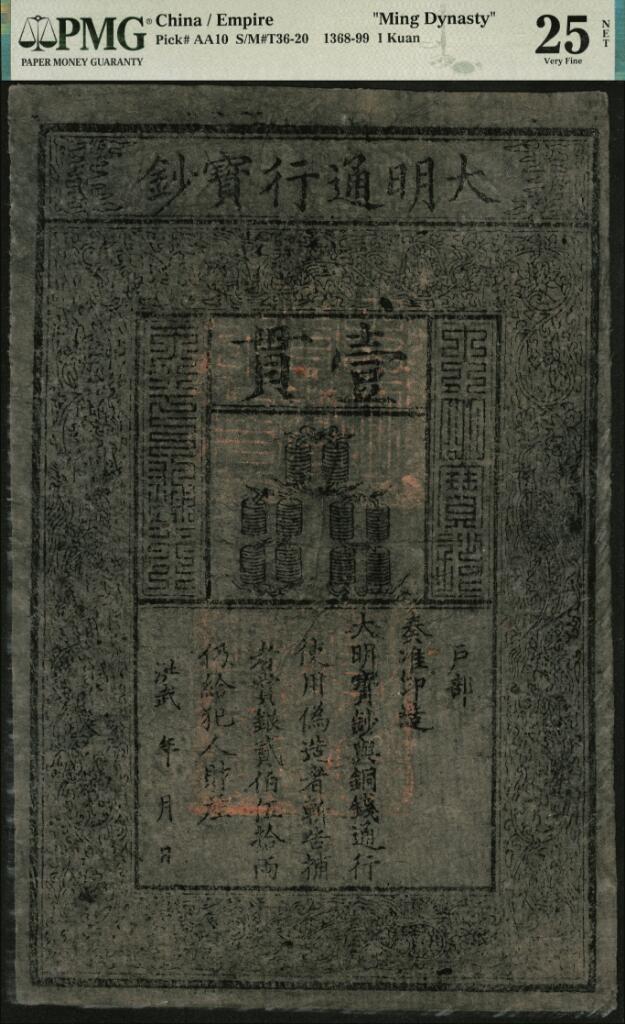 PMG® China / Empire "Ming Dynasty" 25 NET
Pick# AA10 S/M#T36-20 1368-99 1 Kuan
PAPER MONEY GUARANTY Very Fine
大明通行寶鈔
壹貫
戶部
奏准印造
大明寶鈔與銅錢通行
使用偽造者斬告捕
者賞銀貳佰伍拾兩
仍給犯人財產
洪武 年 月 日